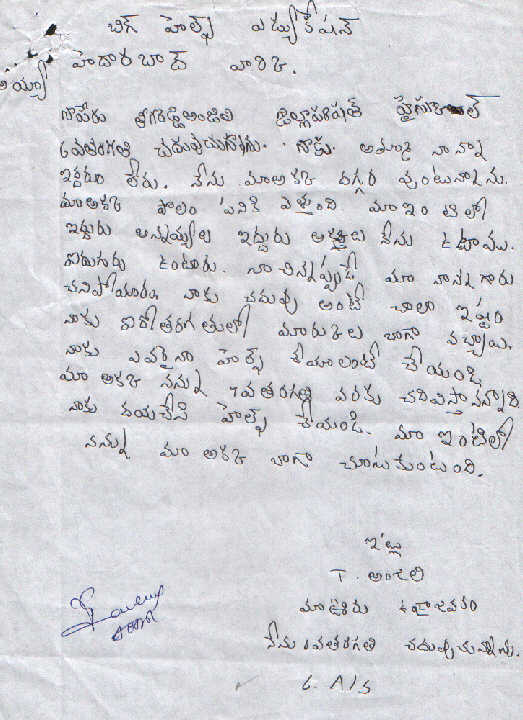 బిగ్ హెల్ప్ ఎడ్యుకేషన్
హైదారబాద్ వారికి.
అయ్యా
నాపేరు తగరపుఅంజలి జిల్లాపరిషత్ హైస్కూల్
6వతరగతి చదువుచున్నాను. నాకు అమ్మ నాన్న
ఇద్దరూ లేరు. నేను మాఅక్క దగ్గర వుంటున్నాను.
మాఅక్క పొలం పనికి వెళ్తుంది మాఇంటిలో
ఇద్దురు అన్నయ్యలు ఇద్దురు అక్కలు నేను
ఉంటారు. నాచిన్నప్పుడే మా నాన్నగారు
చనిపోయారు. నాకు చదువు అంటే చాలా ఇష్టం
నాకు మారుకులు బాగా వచ్చాయి.
నాకు ఎవరైనా హెల్ప్ చేయాలంటే చేయండి
మా అక్క నన్ను 7వతరగతి వరకు చదివిస్తానన్నాది
నాకు దయచేసి హెల్ప్ చేయండి. మా ఇంటిలో
నన్ను మా అక్క బాగా చూసుకుంటుంది.
ఇట్లు
T. అంజలి
మాఊరు
నేను 6వతరగతి చదువుచున్నాను.
6. A/S